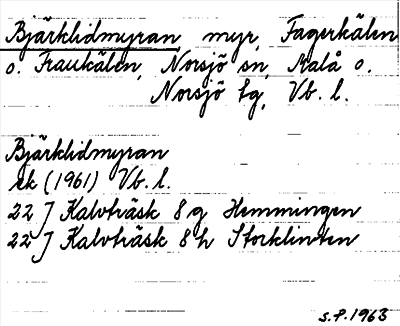 Bjärklidmyran, myr, Fagerkälen
o. Fraukälen, Norsjö sn, Malå o.
Norsjö tg, Vb. l.
Bjärklidmyran
ek (1961) Vb. l.
22 J Kalvträsk 8 g Hemmingen
22 J Kalvträsk 8 h Storklinten
S.P. 1963